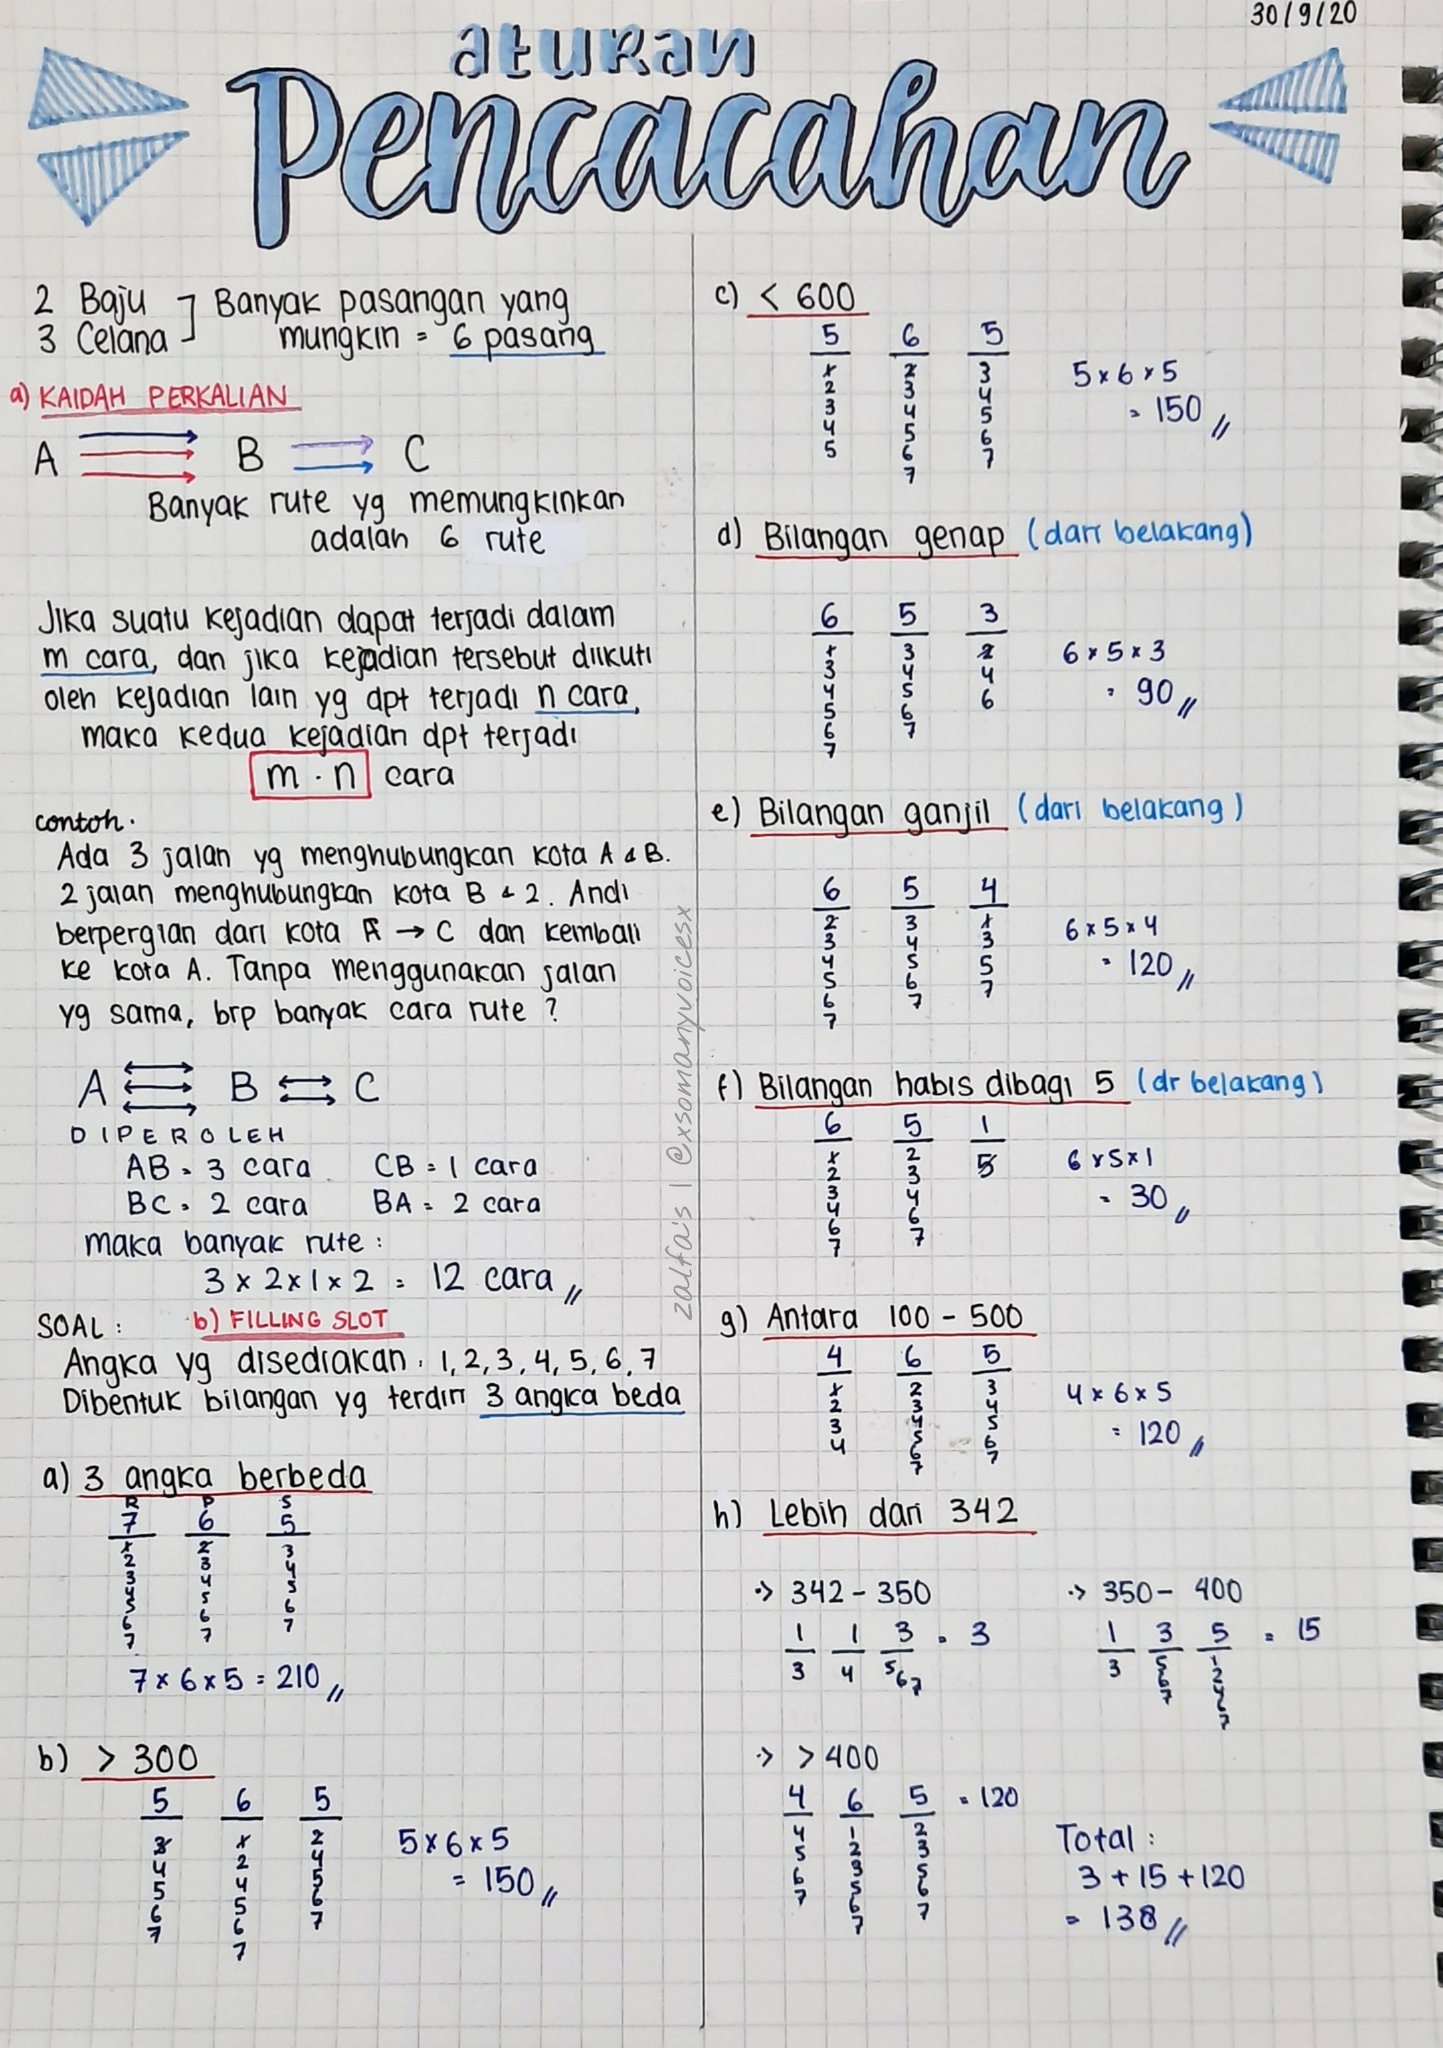 30/9/20
aturan
Pencacahan
2 Baju
3 Celana
Banyak pasangan yang
mungkin = 6 pasang
a) KAIDAH PERKALIAN
A B C
Banyak rute yg memungkinkan
adalah 6 rute
Jika suatu kejadian dapat terjadi dalam
m cara, dan jika kejadian tersebut diikuti
oleh kejadian lain yg dpt terjadi n cara,
maka kedua kejadian dpt terjadi
m . n cara
contoh.
Ada 3 jalan yg menghubungkan kota A & B.
2 jalan menghubungkan kota B & 2. Andi
berpergian dari kota A → C dan kembali
ke kota A. Tanpa menggunakan jalan
yg sama, brp banyak cara rute ?
A B C
DIPEROLEH
AB = 3 cara CB = 1 cara
BC = 2 cara BA = 2 cara
maka banyak rute :
3 x 2 x 1 x 2 = 12 cara //
SOAL : b) FILLING SLOT
Angka yg disediakan : 1, 2, 3, 4, 5, 6, 7
Dibentuk bilangan yg terdiri 3 angka beda
a) 3 angka berbeda
R P S
7 6 5
1 2 3
2 3 4
3 4 5
4 5 6
5 6 7
6 7
7
7 x 6 x 5 = 210 //
b) > 300
5 6 5
3 1 2
4 2 4
5 4 5
6 5 6
7 6 7
7
5 x 6 x 5
= 150 //
zalfa's | @xsomanyvoicesx
c) < 600
5 6 5
1 2 3
2 3 4
3 4 5
4 5 6
5 6 7
7
5 x 6 x 5
= 150 //
d) Bilangan genap (dari belakang)
6 5 3
1 3 2
3 4 4
4 5 6
5 6
6 7
7
6 x 5 x 3
= 90 //
e) Bilangan ganjil (dari belakang)
6 5 4
2 3 1
3 4 3
4 5 5
5 6 7
6 7
7
6 x 5 x 4
= 120 //
f) Bilangan habis dibagi 5 (dr belakang)
6 5 1
1 2 5
2 3
3 4
4 6
6 7
7
6 x 5 x 1
= 30 //
g) Antara 100 - 500
4 6 5
1 2 3
2 3 4
3 4 5
4 5 6
6 7
7
4 x 6 x 5
= 120 //
h) Lebih dari 342
·> 342 - 350
1 1 3 = 3
3 4 5
6 7
·> 350 - 400
1 3 5 = 15
3 5 1
6 2
7 4
6
7
·> > 400
4 6 5 = 120
4 1 2
5 2 3
6 3 5
7 5 6
6 7
7
Total :
3 + 15 + 120
= 138 //